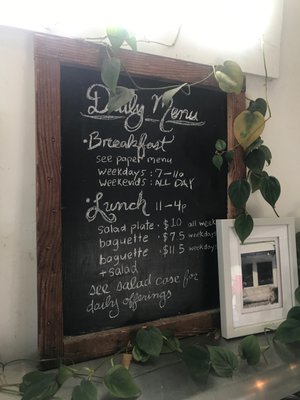 Daily Menu
• Breakfast
see paper menu
weekdays : 7-11a
weekends : ALL DAY
• Lunch 11-4p
salad plate • $10 all week
baguette • $7.5 weekdays
baguette • $11.5 weekdays
+ salad
see salad case for
daily offerings